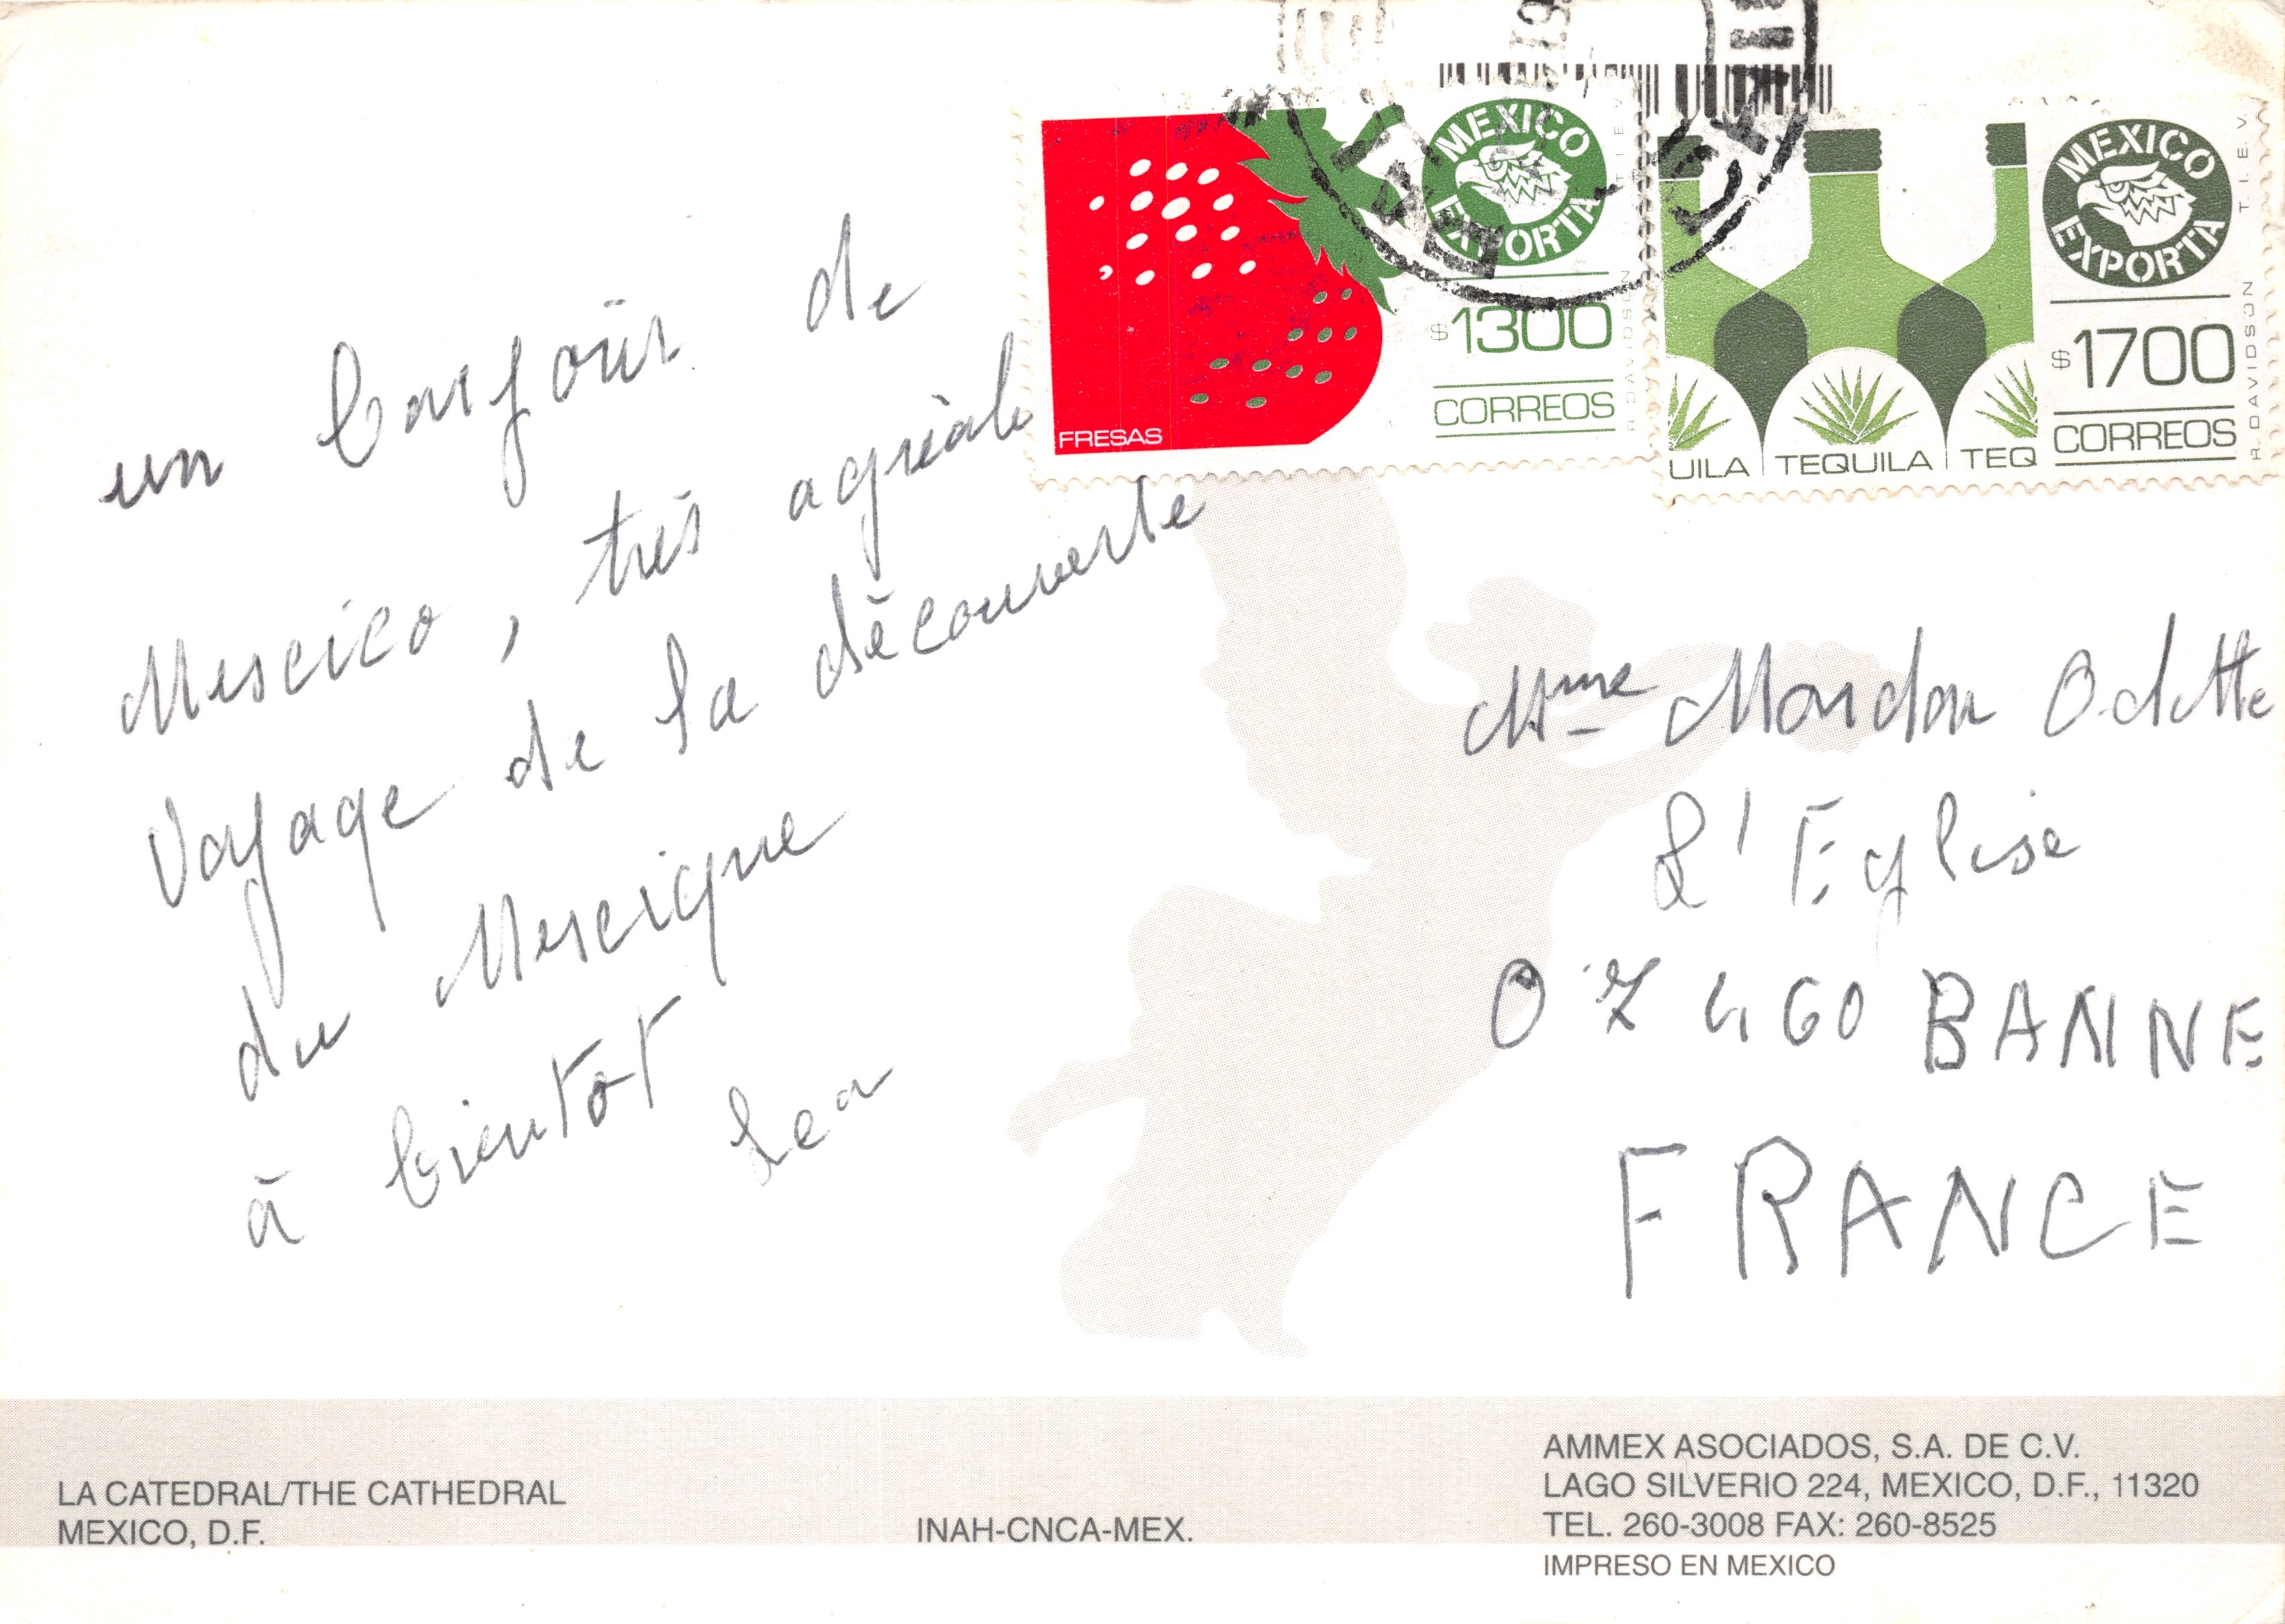 un bonjour de
Mexico, très agréable
Voyage de la découverte
du Mexique
à bientot
Lea
MEXICO
EXPORTA
$1300
CORREOS
FRESAS
T.I.E.V.
R. DAVIDSON
MEXICO
EXPORTA
$1700
CORREOS
UILA TEQUILA TEQ
T.I.E.V.
R. DAVIDSON
Mme Mondon Odette
L'Eglise
07460 BANNE
FRANCE
LA CATEDRAL/THE CATHEDRAL
MEXICO, D.F.
INAH-CNCA-MEX.
AMMEX ASOCIADOS, S.A. DE C.V.
LAGO SILVERIO 224, MEXICO, D.F., 11320
TEL. 260-3008 FAX: 260-8525
IMPRESO EN MEXICO